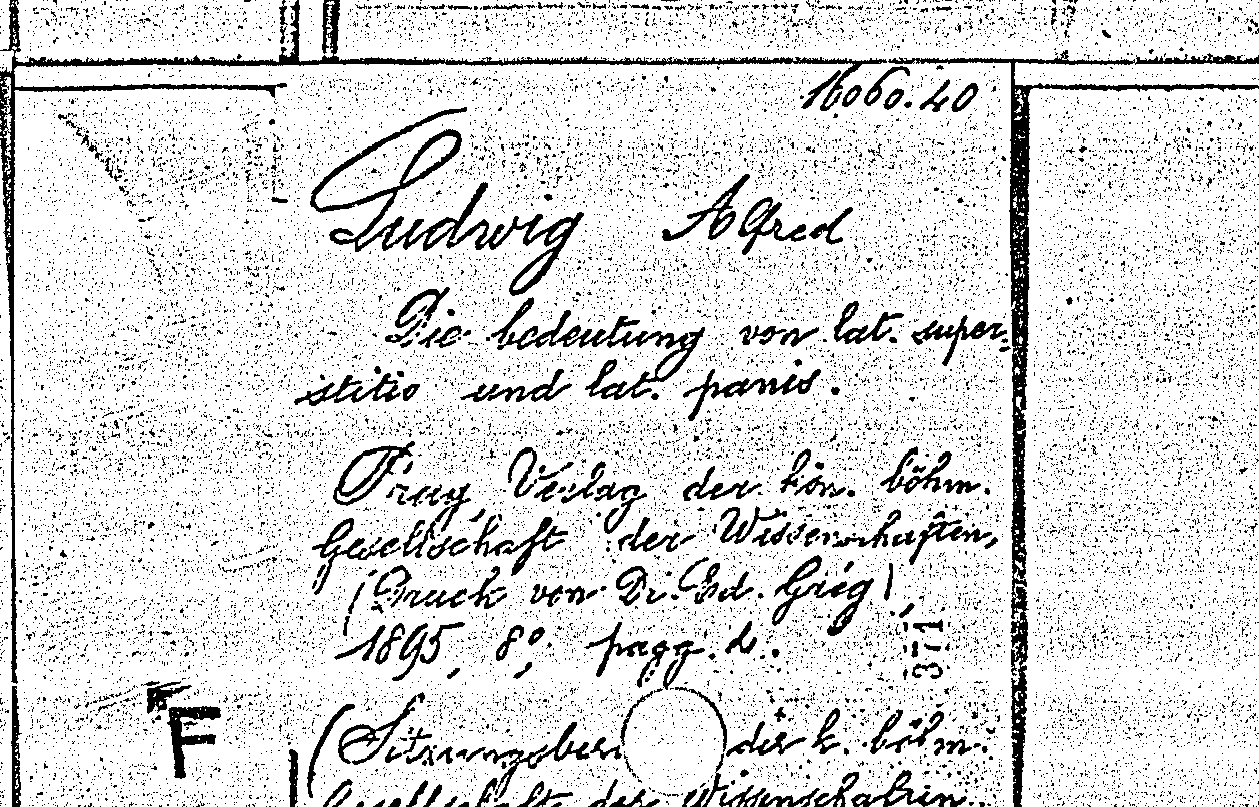 16060.40
Ludwig Alfred
Die bedeutung von lat. super-
stitio und lat. panis.
Prag, Verlag der kön. böhm.
Gesellschaft der Wissenschaften,
(Druck von Dr. Ed. Grég)
1895, 8°, pagg. 4.
371
F
(Sitzungsber der k. böhm.
Gesellschaft der Wissenschaften